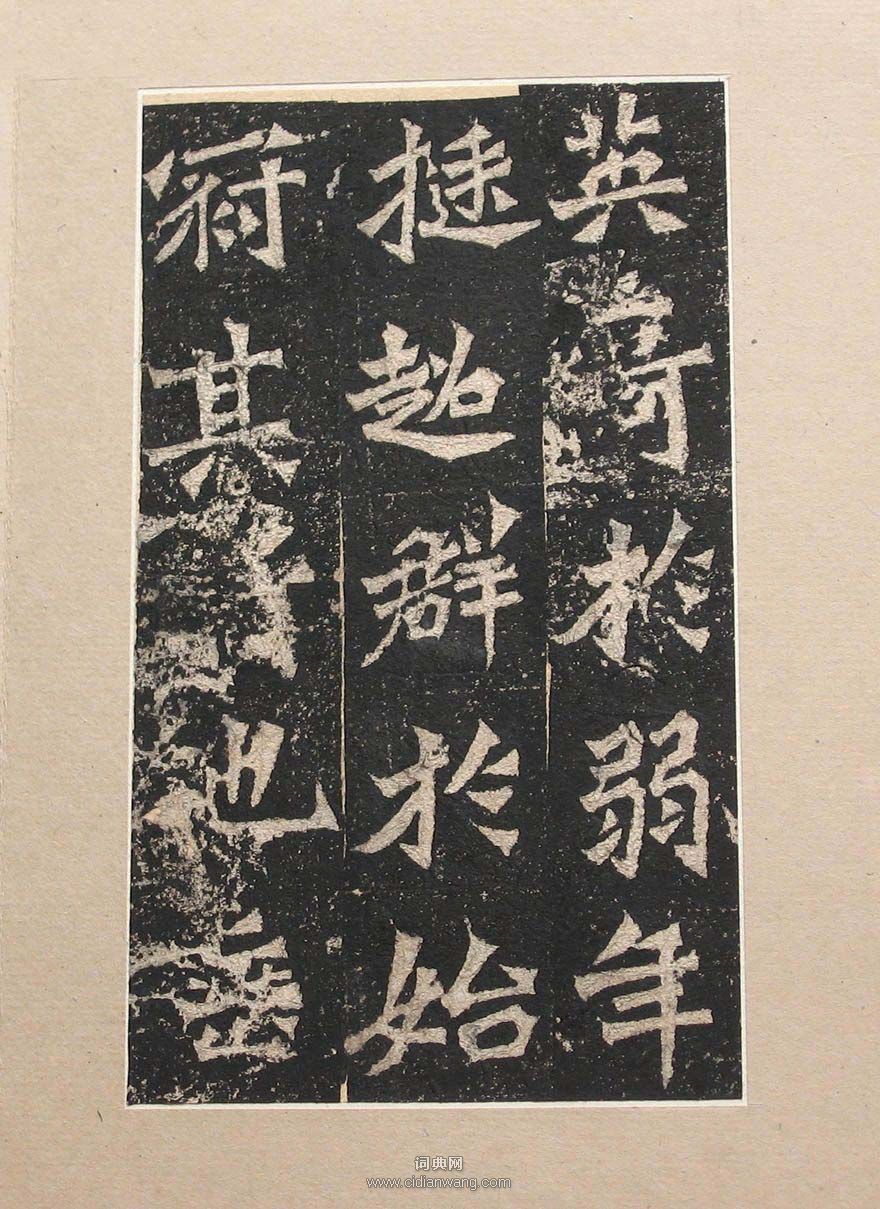 英奇於弱年
挺超群於始
冠其行也垂
词典网
www.cidianwang.com